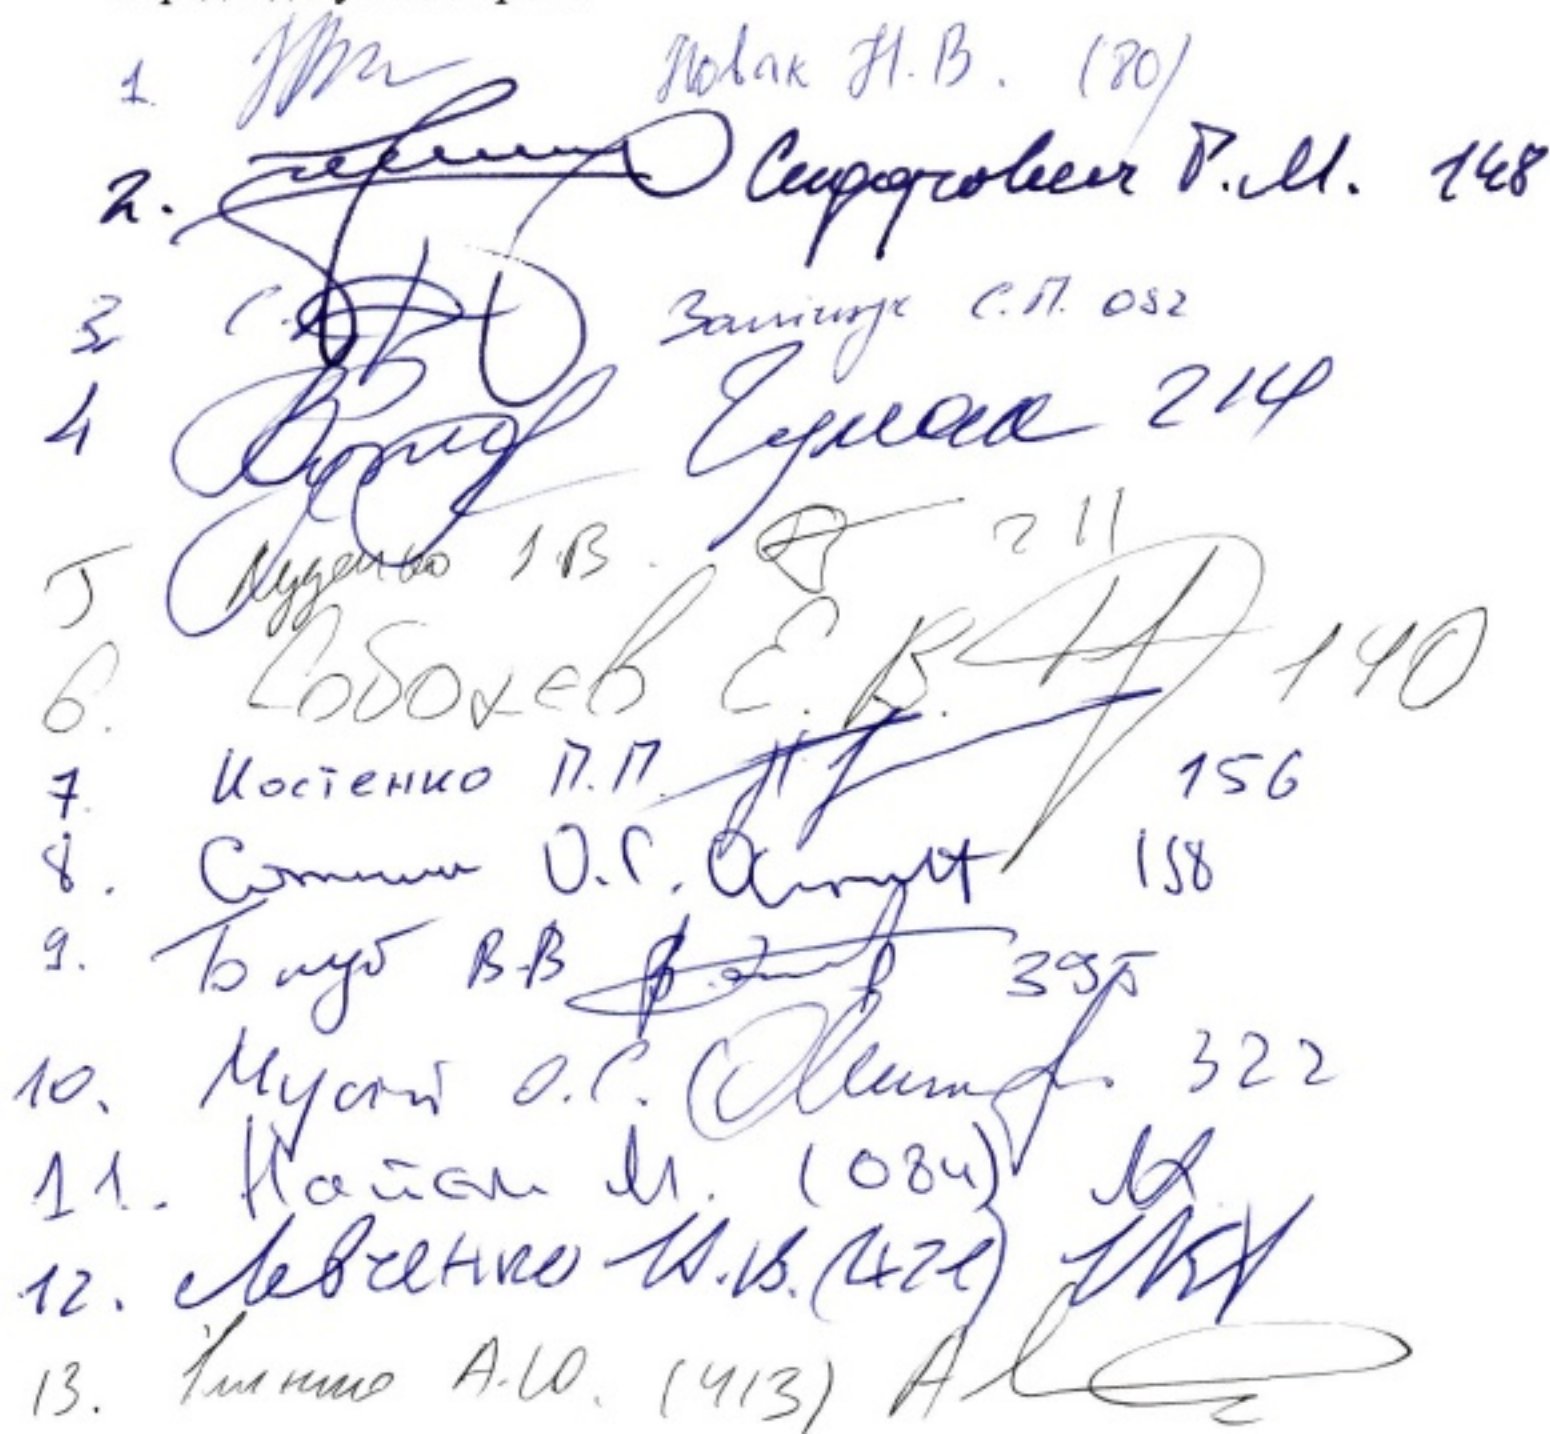 1. Новак Н.В. (80)
2. Сидорович Р.М. 148
3 С.П. 052
4 Чумак 214
5 Луценко І.В. 211
6. Соболєв Є.В. 140
7. Костенко П.П. 156
8. О.Г. 158
9. Блуб В.В 395
10. Мусій О.С. 322
11. Найєм М. (084)
12. Левченко Ю.В. (421)
13. А.Ю. (413)